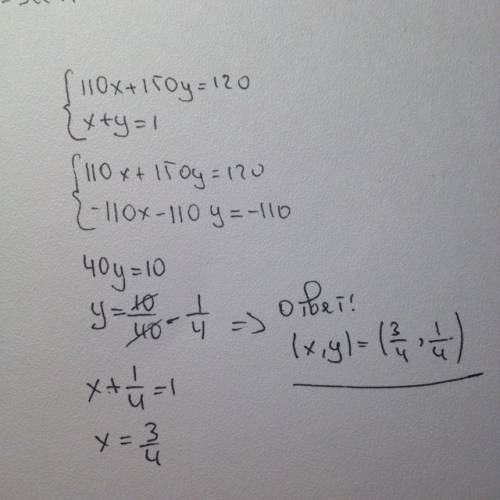 110x+150y=120
x+y=1
110x+150y=120
-110x-110y=-110
40y=10
y=10/40-1/4 => ответ!
(x,y)=(3/4,1/4)
x+1/4=1
x=3/4